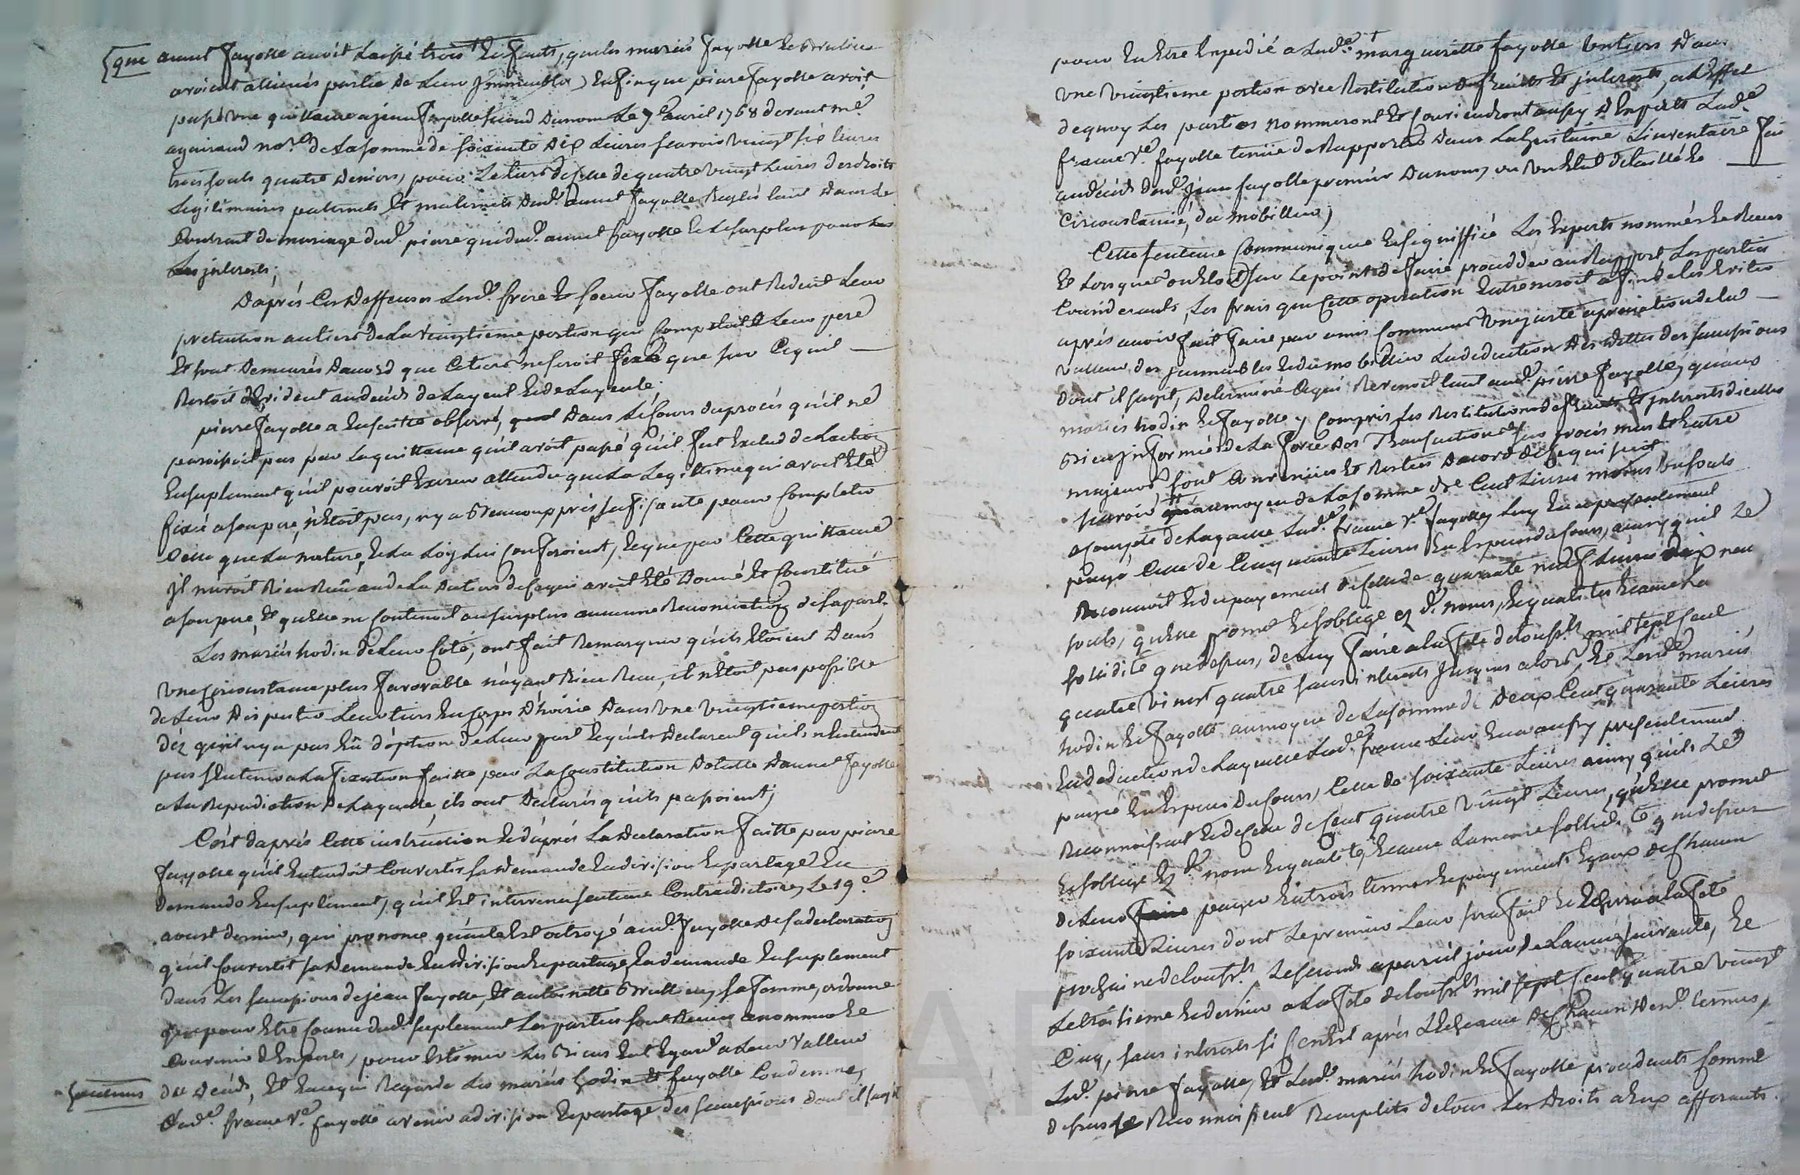 que annet Fayolle avoit Laissé trois Enfants, que les mariés Fayolle et Brutieu
avoient alliénés partie de Leur jmmeubles, Enfin que piere Fayolle avoit
passé une quittance a jean Fayolle second du nom Le 9e avril 1768 devant me
aguiraud nore de La somme de soixante dix Livres
trois sous quatre deniers, pour Le tiers de celle de quatre vingt Livres des droits
Légitimaires paternels, Et maternels dud. annet Fayolle Reglés tant dans le
Contrant de mariage dud. piere que dud. annet fayolle Et Le surplus pour les
Les jnterets;
D'après Ces deffenses Lesd. frere Et soeur Fayolle ont Reduit Leur
pretention au tiers de La vingtieme portion qui Competoit a Leur pere
Et sont demeurés daccord que Ce tiers ne seroit fixé que sur Ce quil
Restoit au decès de Layeul Et de Layeule.
pierre Fayolle a Ensuitte observé, dans Le Cours du procès qu'il ne
paroissoit pas par La quittance qu'il avoit passé qu'il fut Exclud de Laction
En suplement qu'il pouvoit Exercer attendu que La Legittime qui avoit Eté
fixée a son pere, n'Etoit pas, n'y a Beaucoup près suffisante pour Completer
Celle que La nature, Et La Loy Lui Conferoient, Et que par Cette quittance
Jl n'avoit Rien Reçu au de La de Ce qui avoit Eté Donné Et Constitué
a son pere, Et qu'Elle ne Contenoit au surplus aucune Renonciation de sa part.
Les mariés hodin de Leur Coté, ont fait Remarquer qu'ils Etoient dans
une Circonstance plus favorable n'ayant Rien Reçu, il n'Etoit pas possible
de Leur disputer Leur tiers En Corps d'hoirie dans une vingtieme portion
dez qu'il n'y a pas Eû d'option de Leur part Et qu'ils declarent qu'ils n'Entendent
pas s'En tenir a La fixation faitte par La Constitution dannet Fayolle
a La Repudiation de Laquelle, ils ont declarés qu'ils passoient;
C'est d'après Cette instruction Et d'après La declaration faitte par piere
Fayolle qu'il Entendoit Convertir sa demande En division Et partage En
demande En suplement, qu'il Est intervenu sentence Contradictoire, Le 19e
aoust dernier, qui prononce qu'acte Est octroyé aud. Fayolle de sa declaration
qu'il Convertit sa demande En division Et partage, En demande En suplement
dans Les successions de jean Fayolle, Et antoinette Brutieu, sa femme, ordonne
que pour Etre Connu dud. suplement Les parties sont tenues a nommer Et
Convenir d'Experts, pour Estimer Les Biens Eut Egard a Leur valleur
du decès, Et En ce qui Regarde Les mariés hodin Et fayolle Condamne,
Lad. france ve. fayolle a venir a division Et partage des successions dont il s'agit
pour En Etre Expedié a Lad. marguerite fayolle un tiers dans
une vingtieme portion avec Restitution de fruits Et jnterests, a L'Effet
de quoy Les parties nommeront Et Conviendront aussy d'Experts Lad.
france ve. fayolle tenue de Rapporter dans La huitaine L'inventaire fait
au decès dud. jean fayolle premier du nom, ou un Etat detaillé Et
Circonstancié, du mobillier;
Cette sentence Communiquée Et signiffiée Les Experts nommés Et Reçus
Et Lorsquon Etoit sur Le point de faire proceder au Rapport Les parties
Considerants, Les frais que Cette operation Entreneroit afin de les Eviter
après avoir fait faire par amis Communs une juste apreciation de la
valleur, des jmmeubles Et du mobillier La deduction des dettes des successions
dont il s'agit, determiné Ce qui Revenoit tant aud. pierre Fayolle, qu'aux
mariés hodin Et Fayolle y Compris Les Restitutions de fruits Et jnterests d'icelles
Bien jnformés de La force des Transactions sur procès mus Et Entre
majeurs sont Convenues Et Restées daccord de Ce qui suit,
scavoir qu'au moyen de La somme de Cent Livres moins vingt sols
a Compte de Laquelle Lad. france ve. Fayolle, Luy En a presentement
payé Celle de Cinquante Livres En Especes de Cours, ainsy qu'il Le
Reconnoit Et du payement de Celle de quarante neuf Livres dix neuf
sols, qu'Elle promet Et s'oblige ez d. noms, Et qualités Et Come La
sollidité que dessus, de Luy faire a La fête de toussts mil sept Cent
quatre vingt quatre sans interests jusques alors, Et Lesd. mariés
hodin Et Fayolle au moyen de La somme de deux Cent quarante Livres
En deduction de Laquelle Lad. france Leur En a aussy presentement
payée En Especes du Cours, Celle de soixante Livres ainsy qu'ils Le
Reconnoissent Et de Celle de Cent quatre vingt Livres, qu'Elle promet
Et s'oblige Ez d. noms Et qualités Et avec La même sollidité que dessus
de Leur payer En trois termes Et payements Egaux de Chacun
soixante Livres dont Le premier Leur sera fait Et Echerra a La fete
prochaine de toussts. Le second a pareil jour de Lannée suivante, Et
Le troisieme Et dernier a La fête de toussts mil sept Cent quatre vingt
Cinq, sans interests si Ce n'Est après L'Echeance de Chacun desd. termes,
Led. pierre Fayolle, Et Lesd. mariés hodin Et Fayolle procedants Comme
dessus Se Reconnoissent Remplits de tous Les droits a Eux afferants